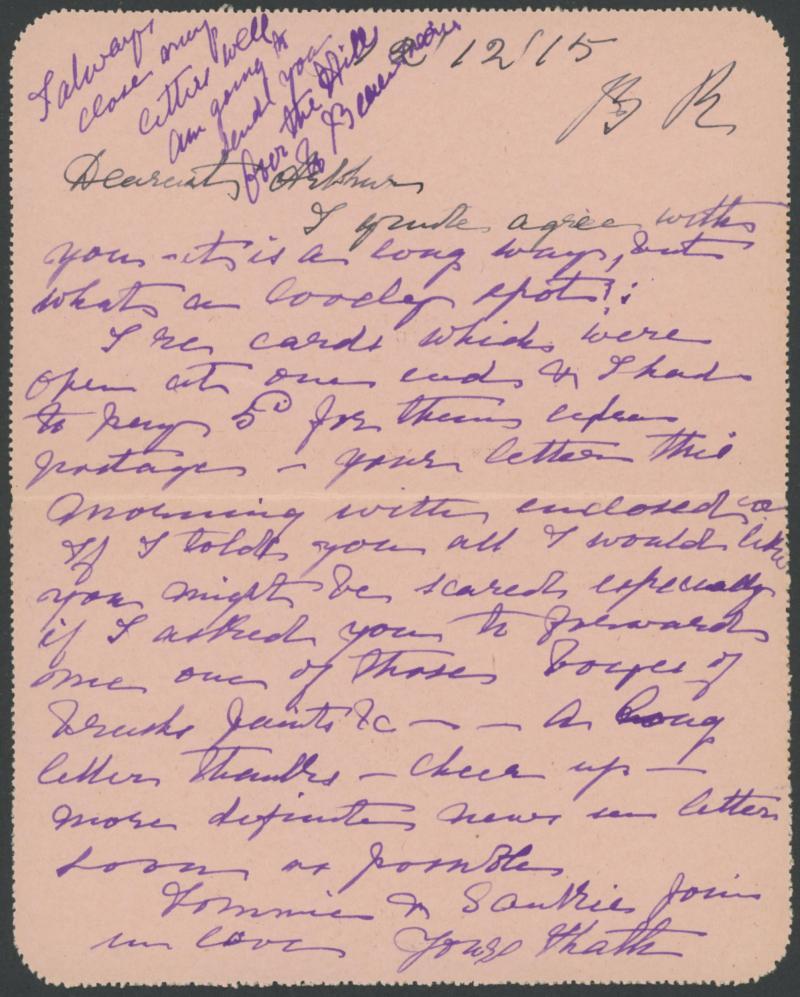 I always
close my
letters well
am going to
send you
over the Hills
to Bearempore
12/15
B R
Dearest Arthur
I quite agree with
you - it is a long way, but
what a lovely spot!;
I re cards which were
open at one end & I had
to pay 5d for them extra
postage - your letter this
morning with enclosed
If I told you all I would like
you might be scared especially
if I asked you to forward
me one of those boxes of
brushes paints &c - - A long
letter thanks - cheer up -
more definite news in letter
soon as possible
Tommie & join
in love Yours